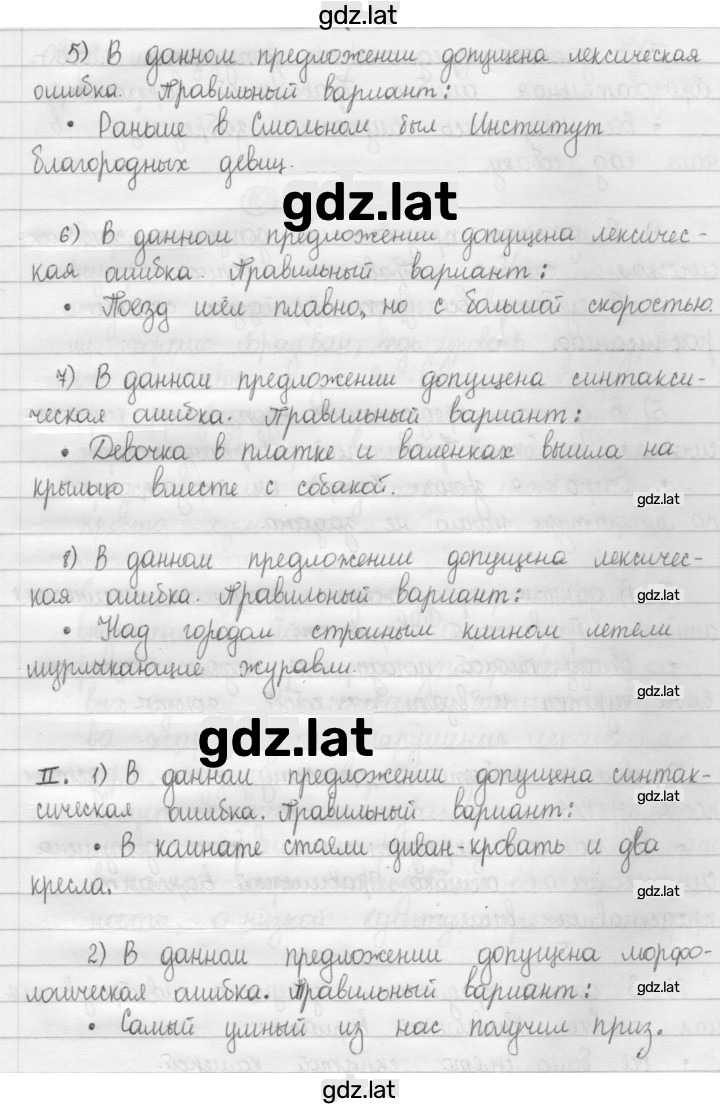 gdz.lat
5) В данном предложении допущена лексическая
ошибка. Правильный вариант:
• Раньше в Смольном был Институт
благородных девиц.
gdz.lat
6) В данном предложении допущена лексичес-
кая ошибка. Правильный вариант:
• Поезд шёл плавно, но с большой скоростью.
7) В данном предложении допущена синтакси-
ческая ошибка. Правильный вариант:
• Девочка в платке и валенках вышла на
крыльцо вместе с собакой.
gdz.lat
8) В данном предложении допущена лексичес-
кая ошибка. Правильный вариант:
gdz.lat
• Над городом стройным клином летели
мурлыкающие журавли.
gdz.lat
gdz.lat
II. 1) В данном предложении допущена синтак-
сическая ошибка. Правильный вариант:
gdz.lat
• В комнате стояли диван-кровать и два
кресла.
gdz.lat
2) В данном предложении допущена морфо-
логическая ошибка. Правильный вариант:
gdz.lat
• Самый умный из нас получил приз.
gdz.lat